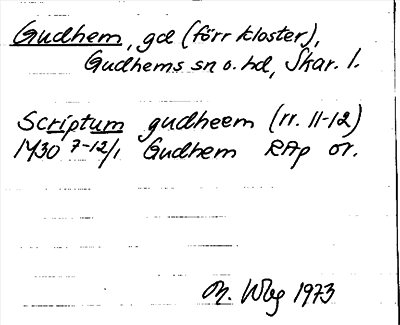 Gudhem, gd (förr kloster),
Gudhems sn o. hd, Skar. l.
Scriptum gudheem (rr. 11-12)
1430 7-12/1 Gudhem RAp or.
M. Wbg 1973